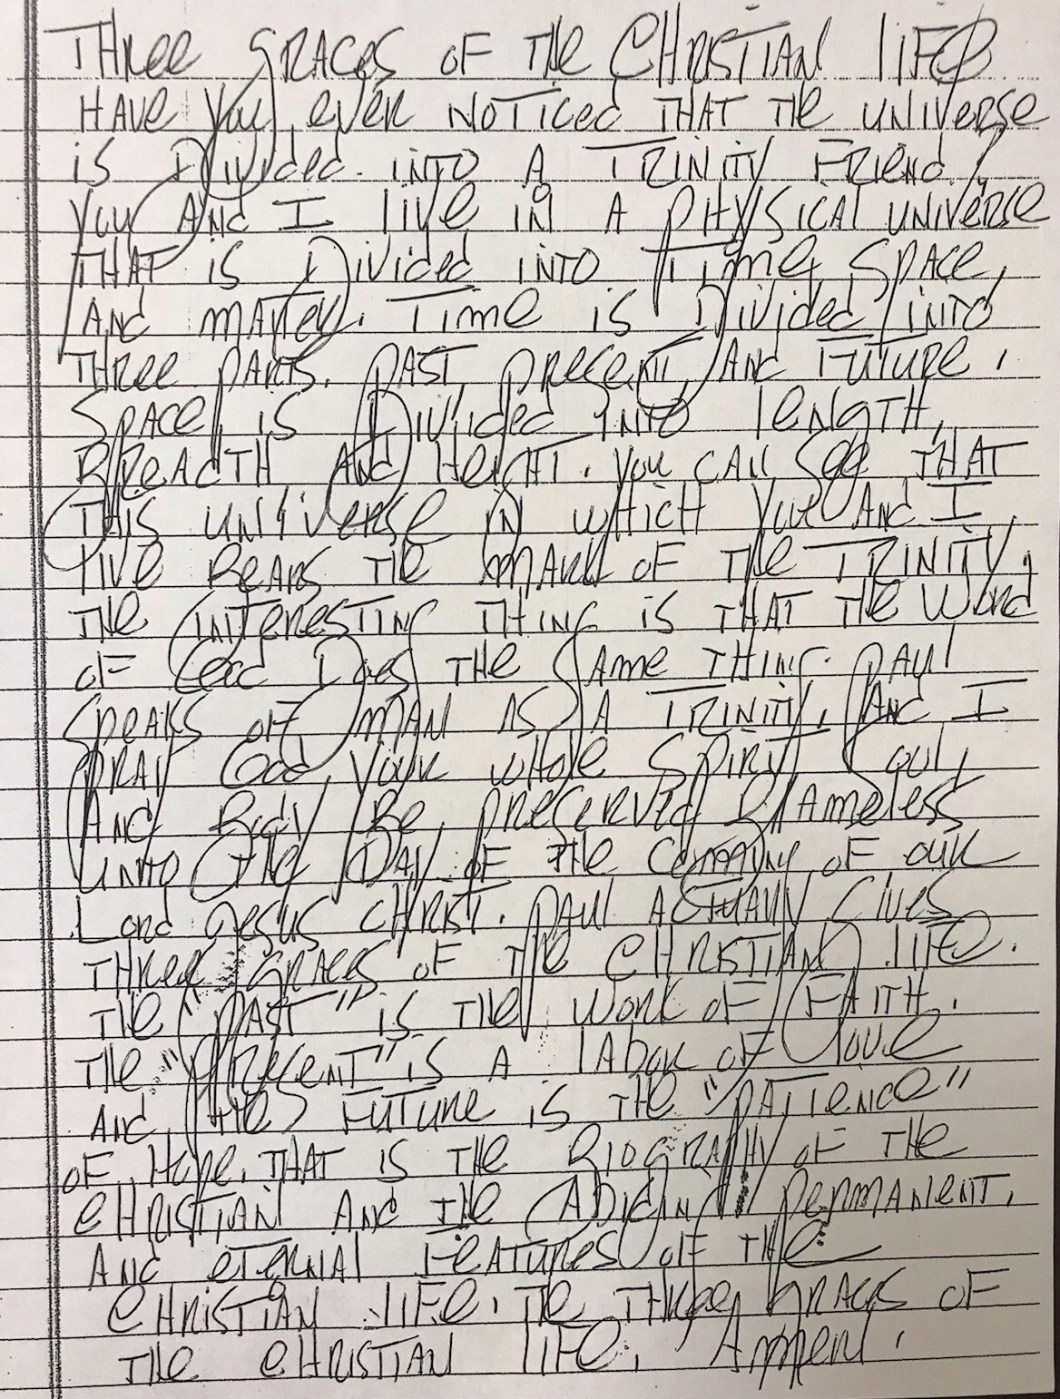 THREE GRACES OF THE CHRISTIAN LIFE
HAVE YOU EVER NOTICED THAT THE UNIVERSE
IS DIVIDED INTO A TRINITY FRIEND?
YOU AND I LIVE IN A PHYSICAL UNIVERSE
THAT IS DIVIDED INTO TIME, SPACE,
AND MATTER. TIME IS DIVIDED INTO
THREE PARTS. PAST, PRESENT, AND FUTURE.
SPACE IS DIVIDED INTO LENGTH,
BREADTH AND HEIGHT. YOU CAN SEE THAT
THIS UNIVERSE IN WHICH YOU AND I
LIVE BEARS THE MARK OF THE TRINITY.
THE INTERESTING THING IS THAT THE WORD
OF GOD DOES THE SAME THING. PAUL
SPEAKS OF MAN AS A TRINITY. AND I
PRAY GOD, YOUR WHOLE SPIRIT, SOUL,
AND BODY BE PRESERVED BLAMELESS
UNTO THE DAY OF THE COMING OF OUR
LORD JESUS CHRIST. PAUL ACTUALLY GIVES
THREE GRACES OF THE CHRISTIAN LIFE.
THE "PAST" IS THE WORK OF FAITH.
THE "PRESENT" IS A LABOR OF LOVE
AND THE FUTURE IS THE "PATIENCE"
OF HOPE. THAT IS THE BIOGRAPHY OF THE
CHRISTIAN AND THE ABIDING PERMANENT,
AND ETERNAL FEATURES OF THE
CHRISTIAN LIFE. THE THREE GRACES OF
THE CHRISTIAN LIFE. AMMEN.